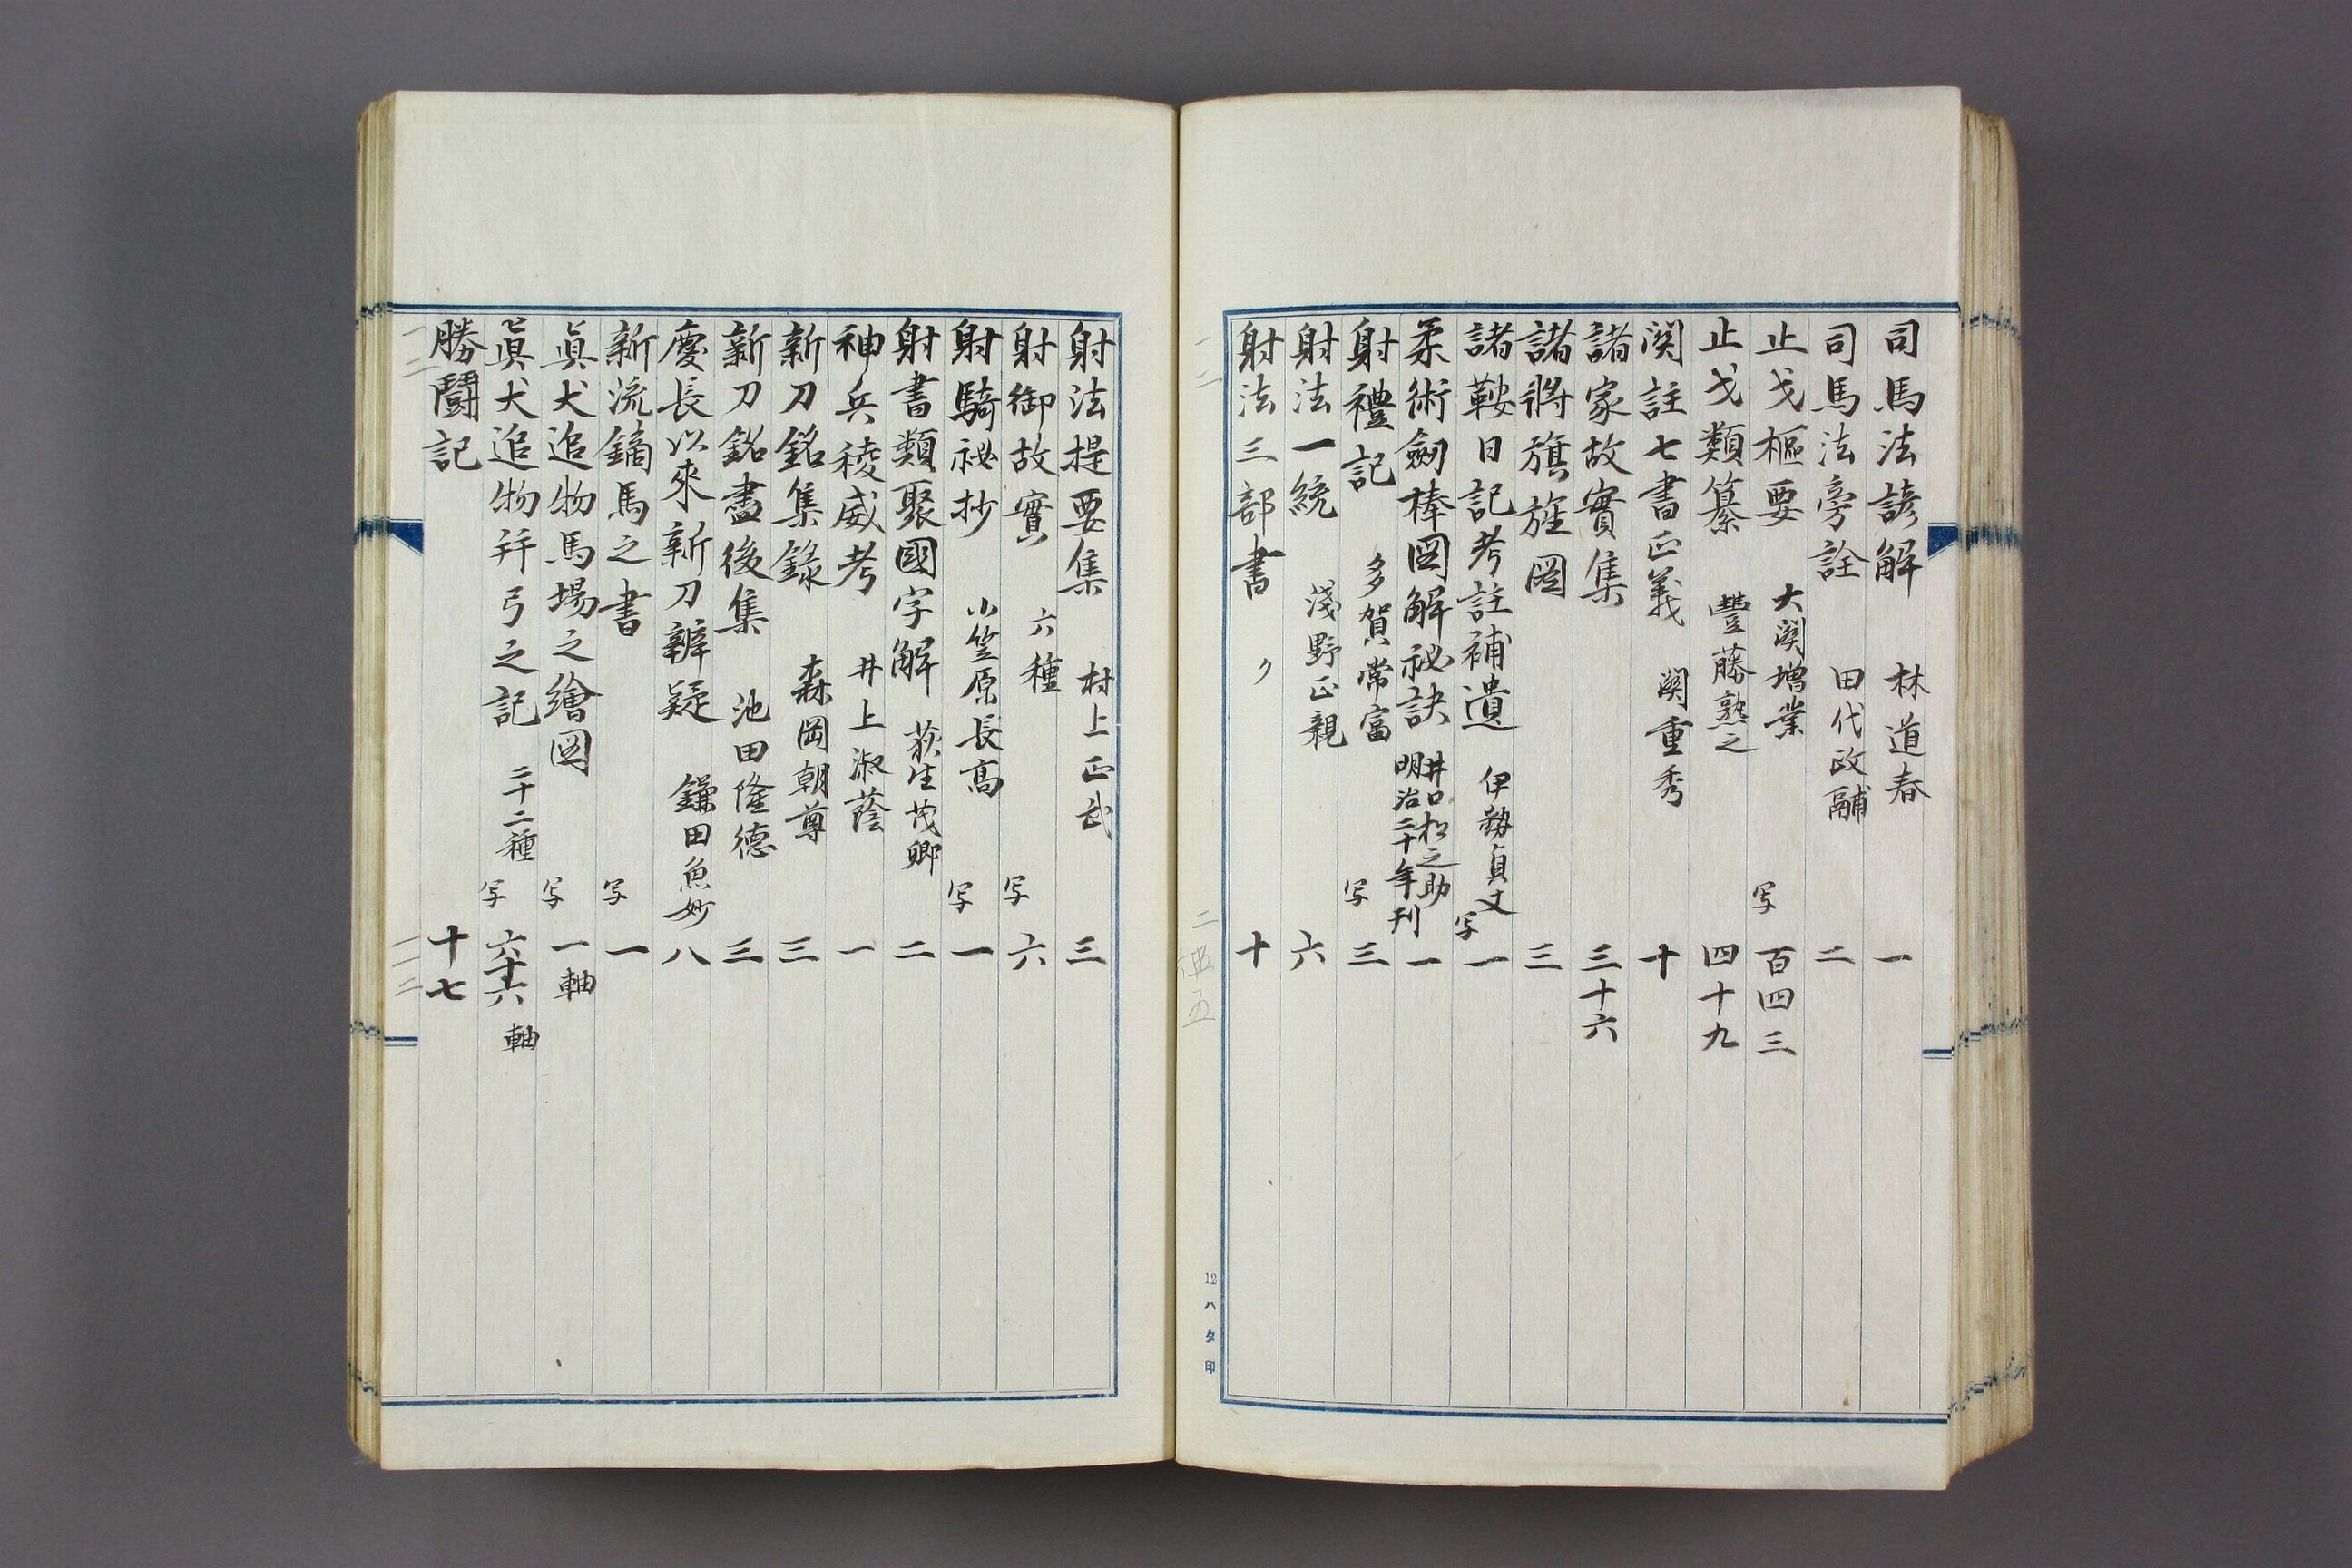 司馬法諺解 林道春 一
司馬法旁詮 田代政䰞 二
止戈樞要 大関増業 写 百四三
止戈類纂 豐藤熟之 四十九
関註七書正義 関重秀 十
諸家故實集 三十六
諸將旗旌圖 三
諸鞍日記考註補遺 伊勢貞丈 写 一
柔術劔棒圖解祕訣 井口松之助 明治二十年刊 一
射禮記 多賀常富 写 三
射法一統 淺野正親 六
射法三部書 〃 十
12ハタ印
射法提要集 村上正武 三
射御故實 六種 写 六
射騎祕抄 小笠原長高 写 一
射書類聚國字解 荻生茂卿 二
神兵稜威考 井上淑蔭 一
新刀銘集錄 森岡朝尊 三
新刀銘盡後集 池田隆德 三
慶長以來新刀辨疑 鎌田魚妙 八
新流鏑馬之書 写 一
眞犬追物馬場之繪圖 写 一軸
眞犬追物幷弓之記 二十二種 写 六十六軸
勝鬪記 十七